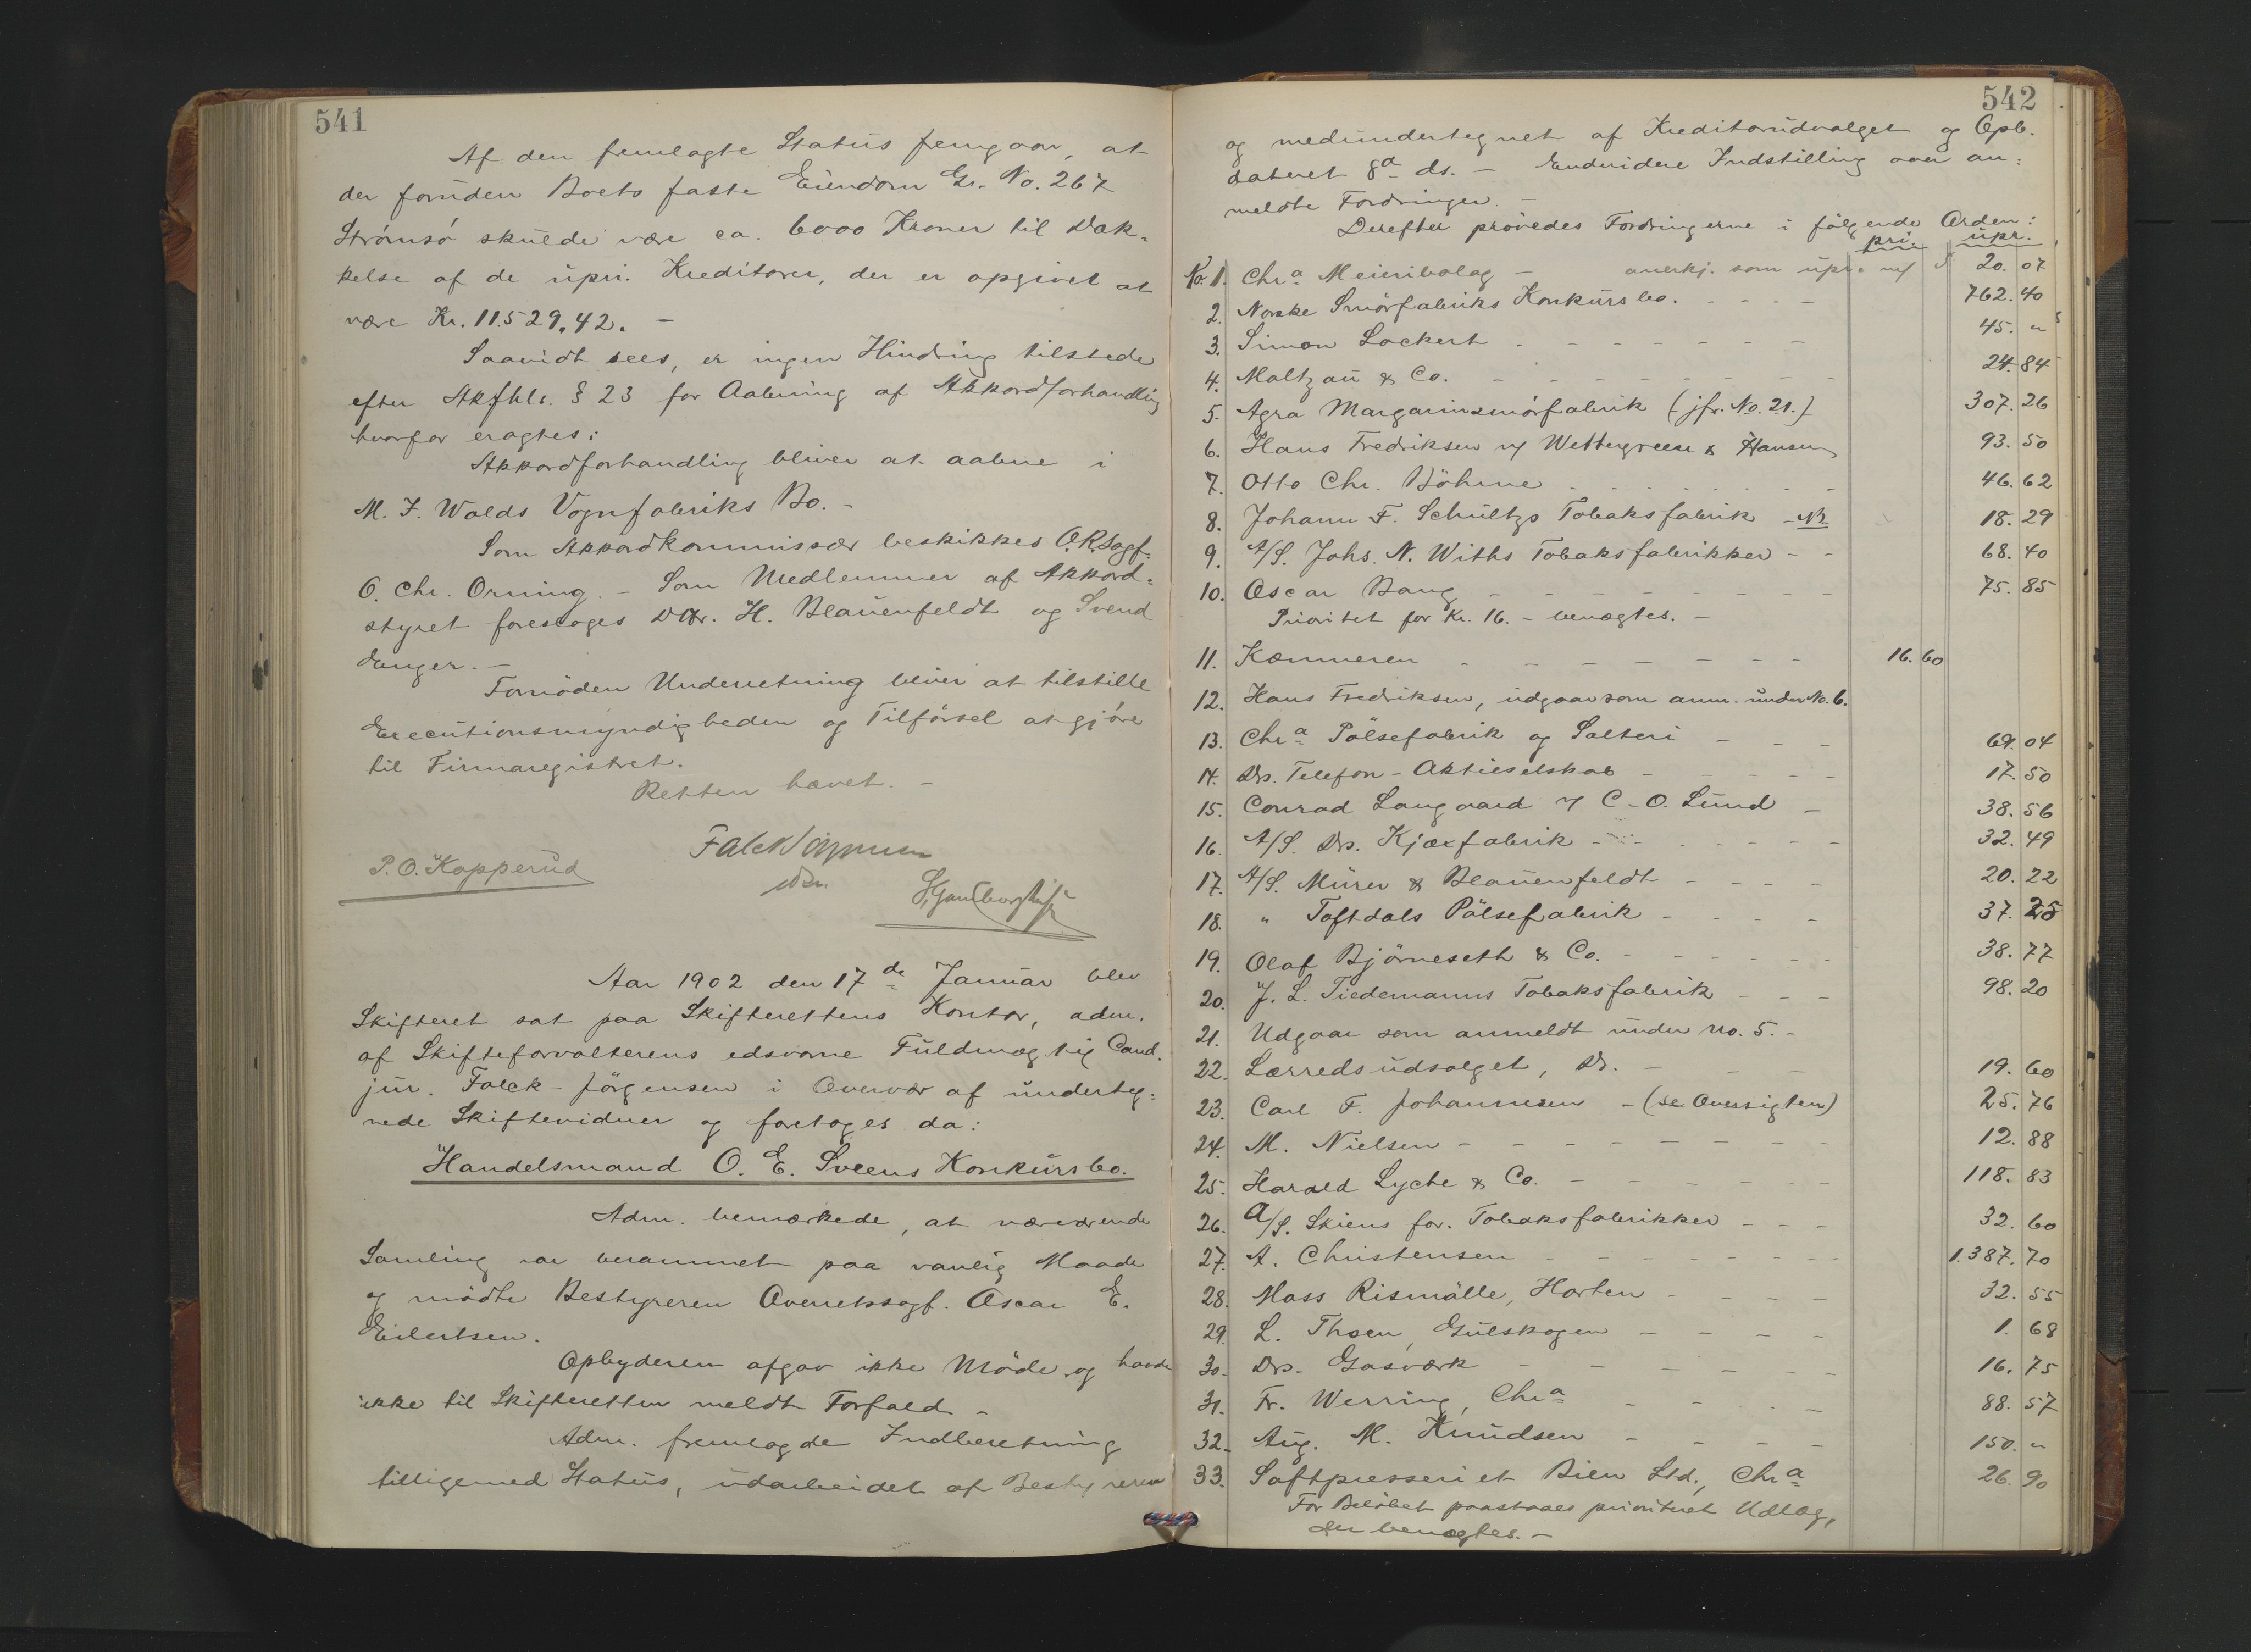 541
Af den fremlagte Status fremgaar, at
der foruden Boets faste Eiendom Gr. No. 267
Strömsö skulde være ca. 6000 Kroner til Dæk-
kelse af de upri. Kreditorer, der er opgivet at
være Kr. 11.529,42. -
Saavidt sees, er ingen Hindring tilstede
efter Akfhls. § 23 for Aabning af Akkordforhandling
hvorfor eragtes:
Akkordforhandling bliver at aabne i
M. F. Walds Vognfabriks Bo. -
Som Akkordkommissær beskikkes O.R.sagf.
O. Chr. Orning. - Som Medlemmer af Akkord-
styret foresloges DHr. H. Blauenfeldt og Svend
Fornöden Underretning bliver at tilstille
Executionsmyndigheden og Tilförsel at gjöre
til Firmaregistret.
Retten hævet. -
P. O. Kopperud
Aar 1902 den 17de Januar blev
Skifteret sat paa Skifterettens Kontor, adm.
af Skifteforvalterens edsvorne Fuldmægtig Cand.
jur. Falck-Jörgensen i Overvær af underteg-
nede Skiftevidner og foretoges da:
Handelsmand O. E. Sveens Konkursbo.
Adm. bemærkede, at nærværende
Samling var berammet paa vanlig Maade
og mödte Bestyreren Overretssagf. Oscar E.
Eilertsen.
Opbyderen afgav ikke Möde og havde
ikke til Skifteretten meldt Forfald -
Adm. fremlagde Indberetning
tilligemed Status, udarbeidet af Bestyreren
542
og medundertegnet af Kreditorudvalget og Opb.
dateret 8a ds. - Endvidere Indstilling over an-
meldte Fordringer. -
Derefter prövedes Fordringerne i fölgende Orden:
pri. upr.
No. 1. Chra Meieribolag - anerkj. som upr. m/ 20.07
2. Norske Smörfabriks Konkursbo. - - - - 762.40
3. Simon Lockert - - - - - - - 45. "
4. Maltzau & Co. - - - - - - - 24.84
5. Agra Margarinsmörfabrik (jfr. No. 21.) 307.26
6. Hans Fredriksen v/ Wettergreen & Hansen 93.50
7. Otto Chr. Böhme - - - - - - - 46.62
8. Johann F. Schultzs Tobaksfabrik 18.29
9. A/S. Johs. N. Withs Tobaksfabrikker - - 68.40
10. Oscar Bang - - - - - - - 75.85
Prioritet for Kr. 16. - benægtes. -
11. Kæmneren - - - - - - - 16.60
12. Hans Fredriksen, udgaar som anm. under No. 6.
13. Chra Pölsefabrik og Salteri - - - 69.04
14. Drs. Telefon-Aktieselskab - - - - - 17.50
15. Conrad Langaard v/ C. O. Lund - 38.56
16. A/S. Drs. Kjæxfabrik - - - - - - 32.49
17. A/S. Mürer & Blauenfeldt - - - - 20.22
18. " Toftdals Pölsefabrik - - - - 37.25
19. Olaf Björneseth & Co. - - - - - - 38.77
20. J. L. Tiedemanns Tobaksfabrik - - - 98.20
21. Udgaar som anmeldt under No. 5. -
22. Lærredsudsalget, Dr. - - - 19.60
23. Carl F. Johannesen - (se Oversigten) 25.76
24. M. Nielsen - - - - - - - - 12.88
25. Harald Lyche & Co. - - - - - - 118.83
26. A/S. Skiens for. Tobaksfabrikker - - - 32.60
27. A. Christensen - - - - - - - - 1.387.70
28. Moss Rismölle, Horten - - - - 32.55
29. L. Thoen, Gulskogen - - - - 1.68
30. Drs. Gasværk - - - - - 16.75
31. Fr. Werring, Chra - - - - 88.57
32. Aug. M. Knudsen - - - - 150. "
33. Saftpresseriet Bien Ltd., Chra 26.90
For Belöbet paastaaes prioriteret Udlæg,
der benægtes. -